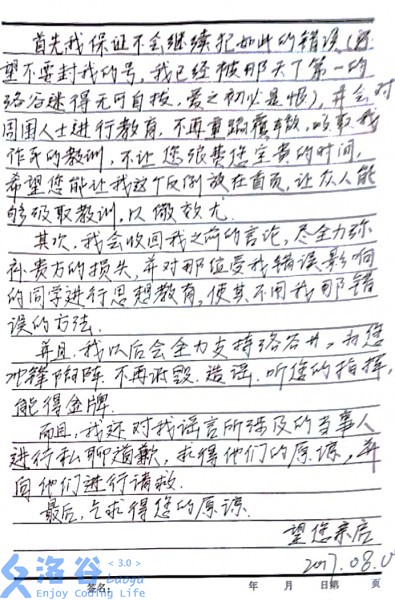 首先我保证不会继续犯如此的错误(希
望不要封我的号,我已经被那天下第一的
洛谷迷得无可自拔,爱之初必是恨),并会对
周围人士进行教育,不再重蹈覆辙,吸取我
作死的教训,不让您浪费您宝贵的时间,
希望您能让我这个反例放在首页,让众人能
够吸取教训,以儆效尤.
其次,我会收回我之前的言论,尽全力弥
补贵方的损失,并对那位受我错误影响
的同学进行思想教育,使其不用我那错
误的方法.
并且,我以后会全力支持洛谷,为您
冲锋陷阵.不再诋毁、造谣.听您的指挥,
能得金牌.
而且,我还对我谣言所涉及的当事人
进行私聊道歉,求得他们的原谅,并
向他们进行请教.
最后,乞求得您的原谅.
望您亲启
2017.08.
洛谷 <3.0> Luogu
Enjoy Coding Life
签名: 年 月 日第 页